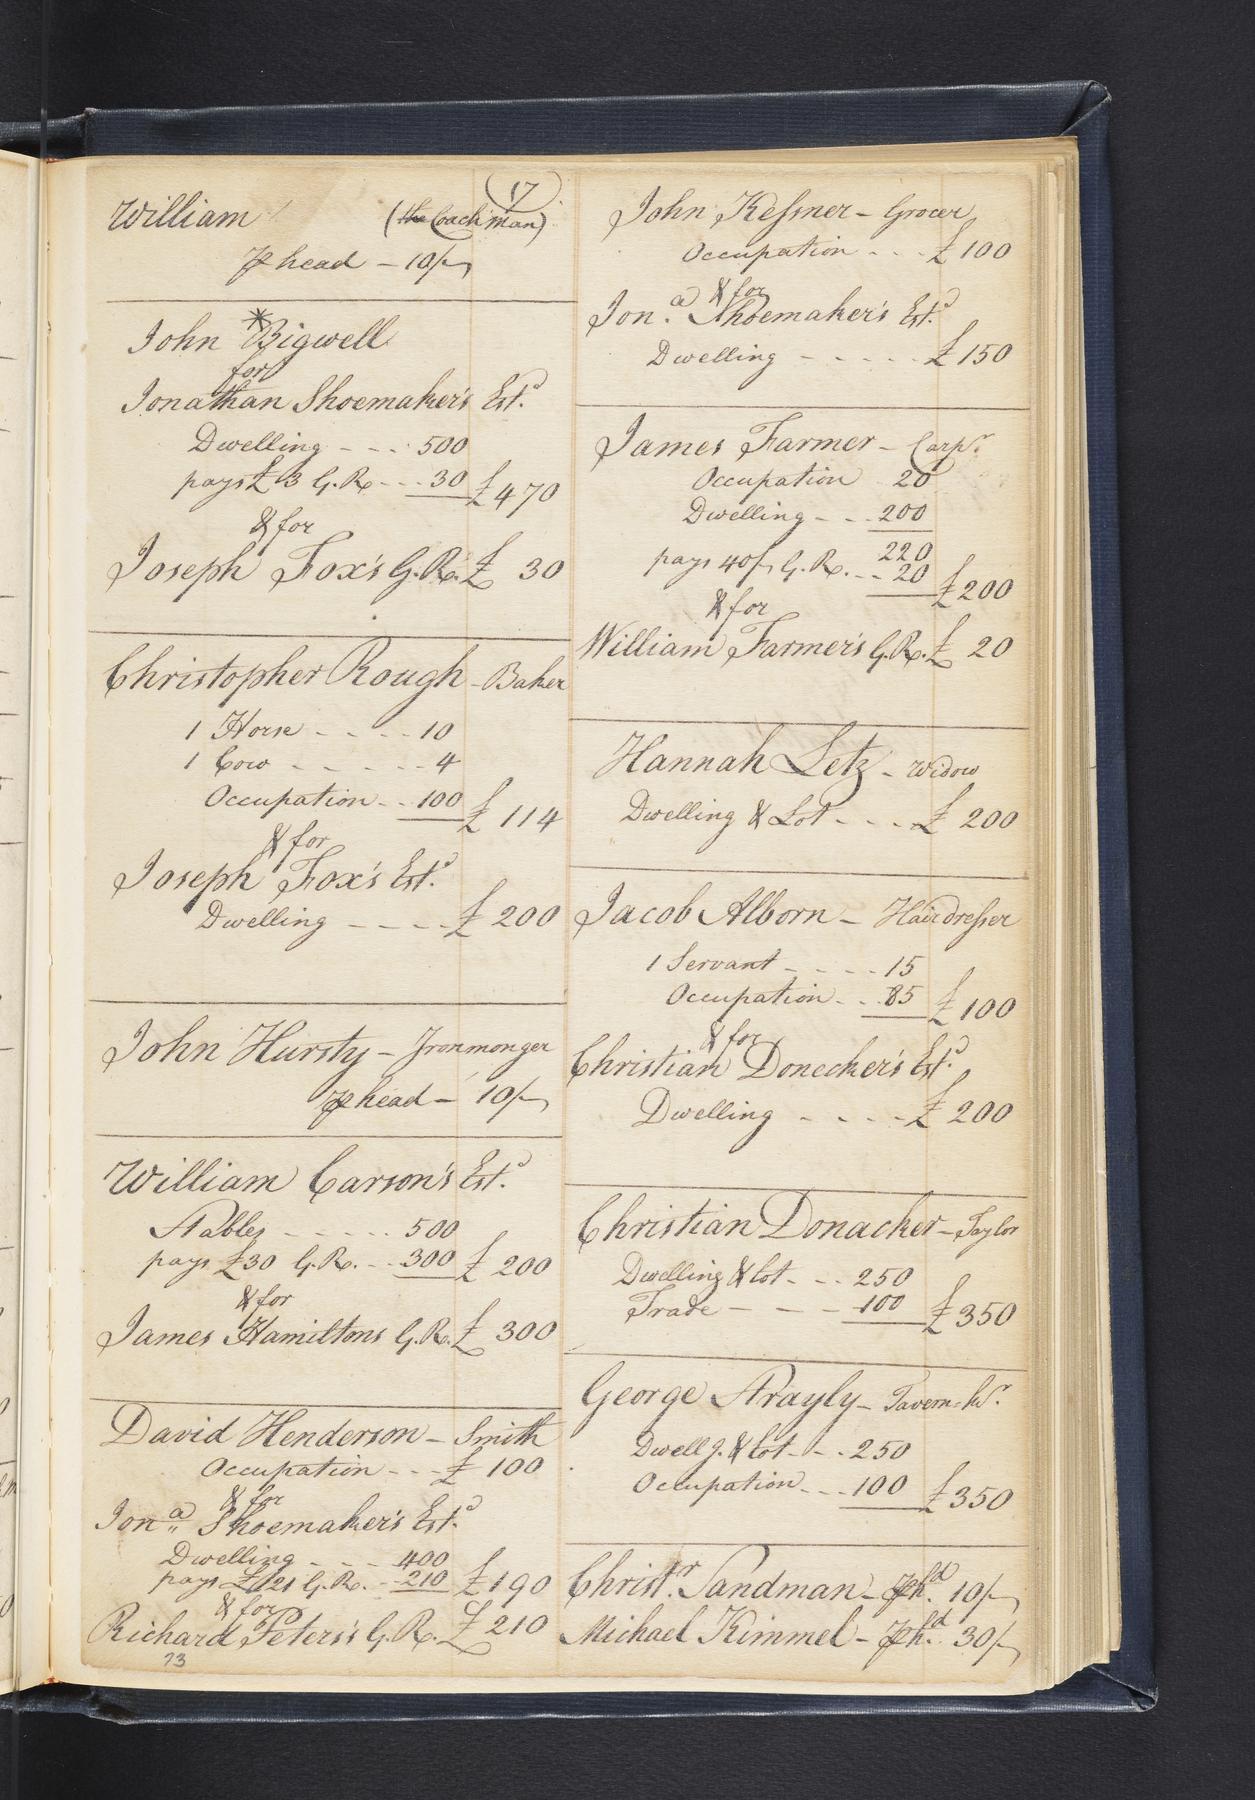 17
William (the Coachman)
℔ head - 10/-
John *Bigwell
for
Jonathan Shoemaker's Estd.
Dwelling - - - 500
pays £3 G.R. - - - 30 £470
& for
Joseph Fox's G.R. £ 30
Christopher Rough - Baker
1 Horse - - - - 10
1 Cow - - - - - 4
Occupation - - 100 £ 114
& for
Joseph Fox's Estd.
Dwelling - - - - £ 200
John Hursty - Ironmonger
℔ head - 10/-
William Carson's Estd.
Stables - - - - - 500
pays £30 G.R. - - 300 £ 200
& for
James Hamiltons G.R. £ 300
David Henderson - Smith
Occupation - - - £ 100
& for
Jona. Shoemaker's Estd.
Dwelling - - - 400
pays £21 G.R. - 210 £190
& for
Richard Peters's G.R. £210
73
John Kessner - Grocer
Occupation - - - £100
& for
Jona. Shoemaker's Estd.
Dwelling - - - - - £150
James Farmer - Carpr.
Occupation 20
Dwelling - - - 200
220
pays 40/- G.R. - - - 20 £200
& for
William Farmer's G.R. £ 20
Hannah Letz - Widow
Dwelling & Lot - - - £ 200
Jacob Alborn - Hairdresser
1 Servant - - - - 15
Occupation - - 85 £100
& for
Christian Donecker's Estd.
Dwelling - - - - £ 200
Christian Donacker - Taylor
Dwelling & lot - - - 250
Trade - - - - 100 £350
George Strayly - Tavern-kr.
Dwellg. & lot - - - 250
Occupation - - - 100 £350
Christr. Sandman - ℔ hd. 10/-
Michael Kimmel - ℔ hd. 30/-